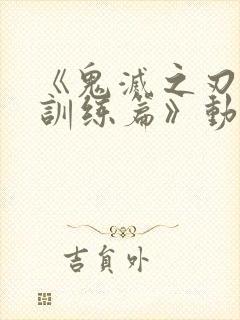 《鬼滅之刃
訓練篇》動
吉貟外